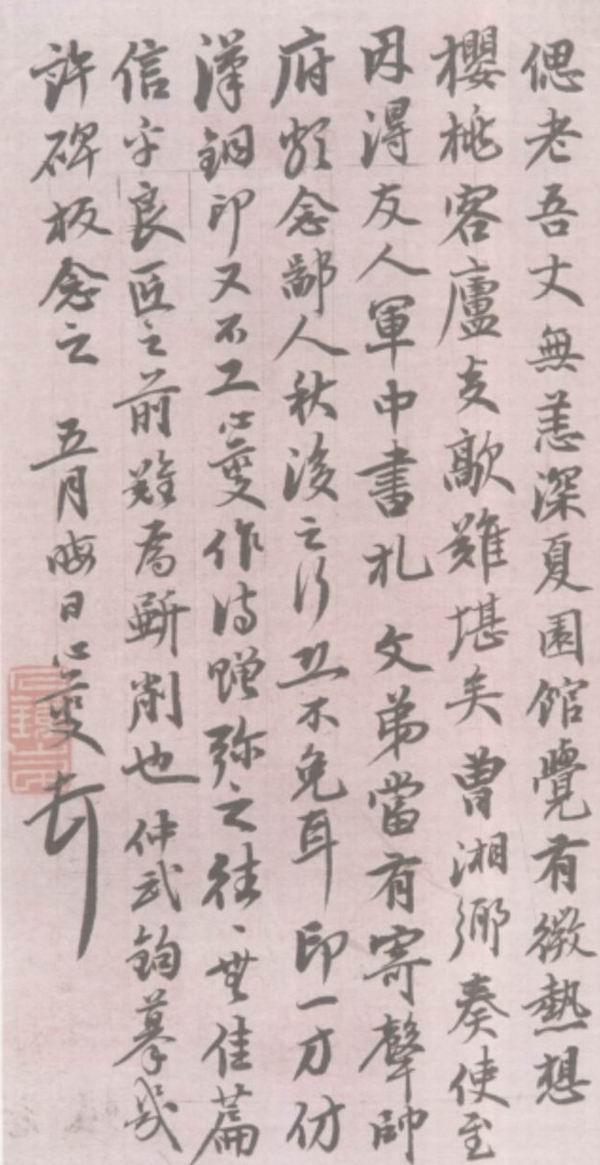 偲老吾丈無恙深夏園館覺有微熱想
櫻桃客廬炎歊難堪矣曹湘鄉奏使至
因得友人軍中書札文弟當有寄聲帥
府頗念鄙人秋後之行恐不免耳印一方仿
漢銅印又不工心夔作詩贈弥之往〻無佳篇
信乎良匠之前難為斲削也仲武鉤摹幾
許碑板念之 五月晦日心夔